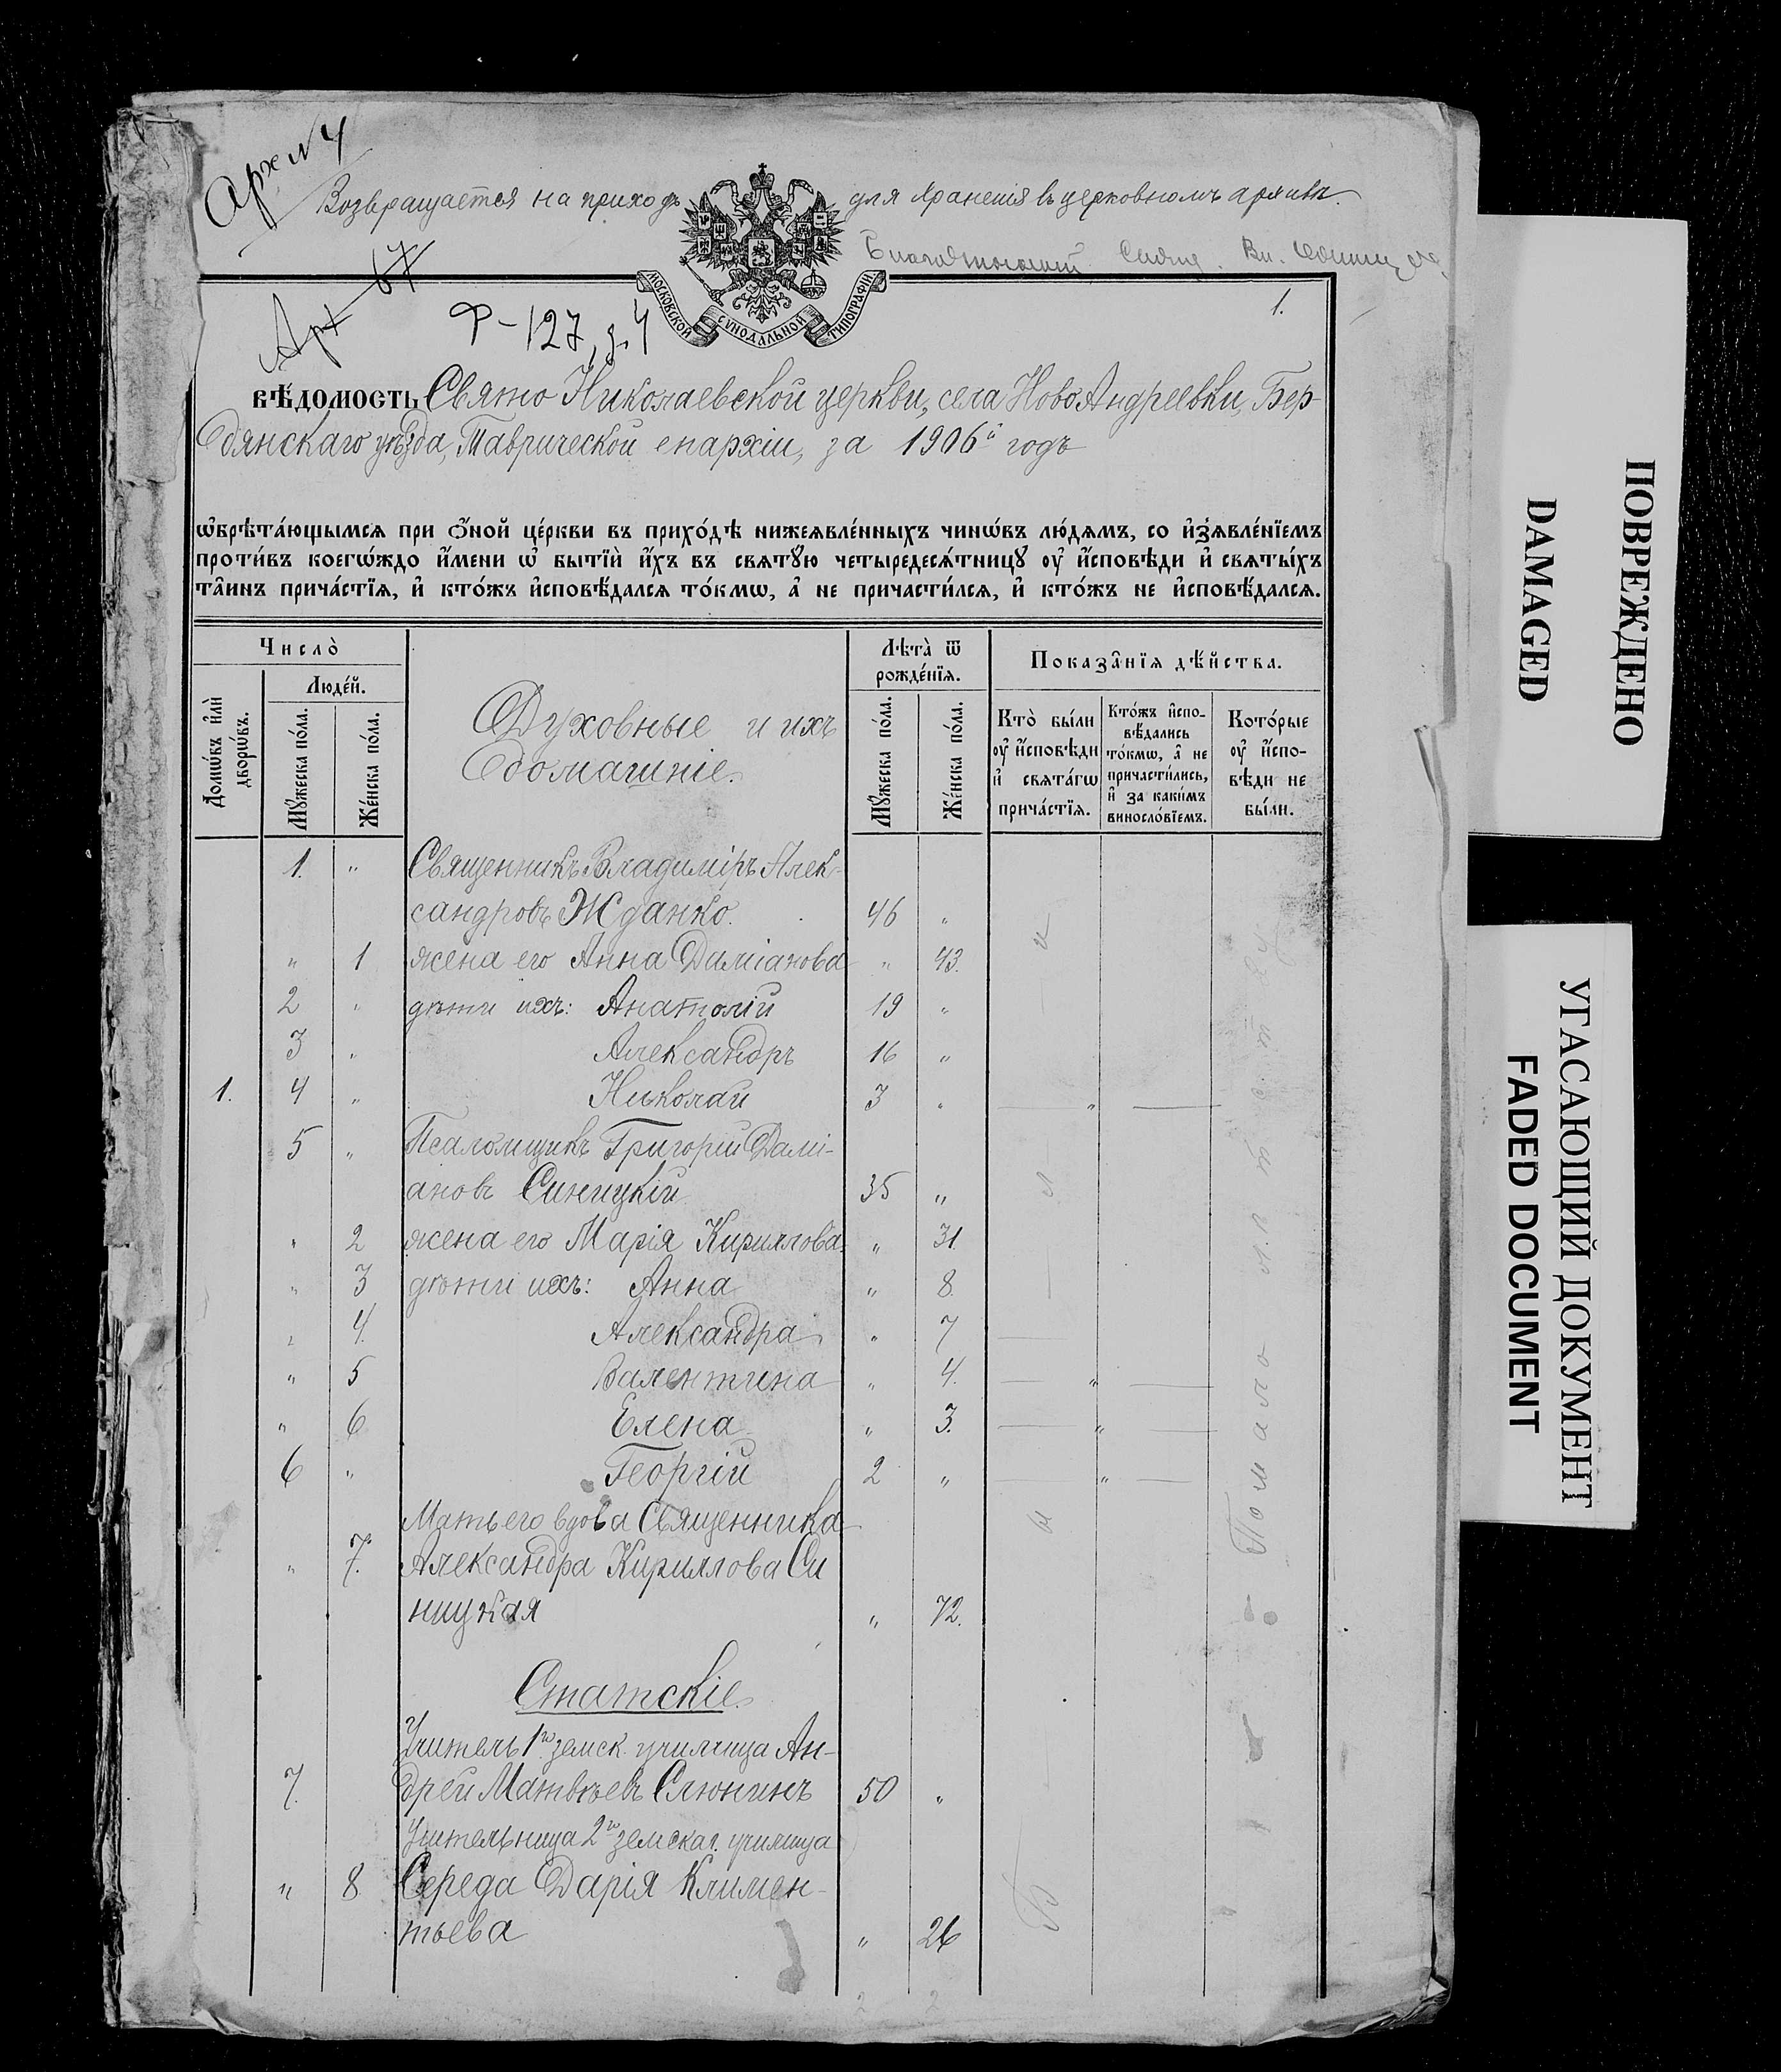 Арх N 4
Возвращается на приходъ для храненія въ церковномъ архивѣ.
Благочинный
Арх 67
Ф-127, д. 4
МОСКОВСКОЙ СѴНОДАЛЬНОЙ ТИПОГРАФІИ.
1.
ВѢ́ДОМОСТЬ Свято Николаевской церкви, села НовоАндреевки, Бер-
дянскаго уѣзда, Таврической епархіи, за 1906й годъ
Ѡ҆брѣта́ющымсѧ при ѻ҆́ной це́ркви въ прихо́дѣ нижеѧвле́нныхъ чинѡ́въ лю́дѧмъ, со и҆зѧвле́нїемъ
проти́въ коегѡ́ждо и҆́мени ѡ҆ бытїѝ и҆́хъ въ свѧтꙋ́ю четыредесѧ́тницꙋ ᲂу҆ и҆́сповѣди и҆ свѧты́хъ
та̑инъ прича́стїѧ, и҆ кто́жъ и҆сповѣ́далсѧ то́кмѡ, а҆ не причасти́лсѧ, и҆ кто́жъ не и҆сповѣ́далсѧ.
Число̀
Людéй.
Домѡ́въ и҆лѝ дворѡ́въ.
Мꙋ́жеска по́ла.
Же́нска по́ла.
Духовные и ихъ
домашніе.
Лѣта̀ ѿ рожде́нїѧ.
Мꙋ́жеска по́ла.
Же́нска по́ла.
Показа̑нїѧ дѣ́йства.
Кто̀ бы́ли ᲂу҆ и҆́сповѣди и҆ свѧта́гѡ прича́стїѧ.
Кто́жъ и҆спо-вѣ́дались то́кмѡ, а҆ не причасти́лись, и҆ за каки́мъ виносло́вїемъ.
Кото́рые ᲂу҆ и҆́спо-вѣди не бы́ли.
1. " Священникъ Владиміръ Алек-
сандровъ Жданко. 46 "
" 1 жена его Анна Даміанова " 43.
2 " дѣти ихъ: Анатолій 19 "
3 " Александръ 16 "
1. 4 " Николай 3 " — " —
5 " Псаломщикъ Григорій Дамі-
ановъ Синицкій 35 "
" 2 жена его Марія Кириллова " 31.
" 3 дѣти ихъ: Анна " 8.
" 4. Александра " 7
" 5 Валентина " 4. — " —
" 6 Елена " 3. — " —
6 " Георгій 2 " — " —
Мать его вдова Священника
" 7. Александра Кириллова Си
ницкая " 72.
Статскіе.
Учитель 1го земск. училища Ан-
7. дрей Матвѣевъ Слюнинъ 50 "
Учительница 2го земскаг. училища
" 8 Середа Дарія Климен-
тьева " 26
ПОВРЕЖДЕНО
DAMAGED
УГАСАЮЩИЙ ДОКУМЕНТ
FADED DOCUMENT